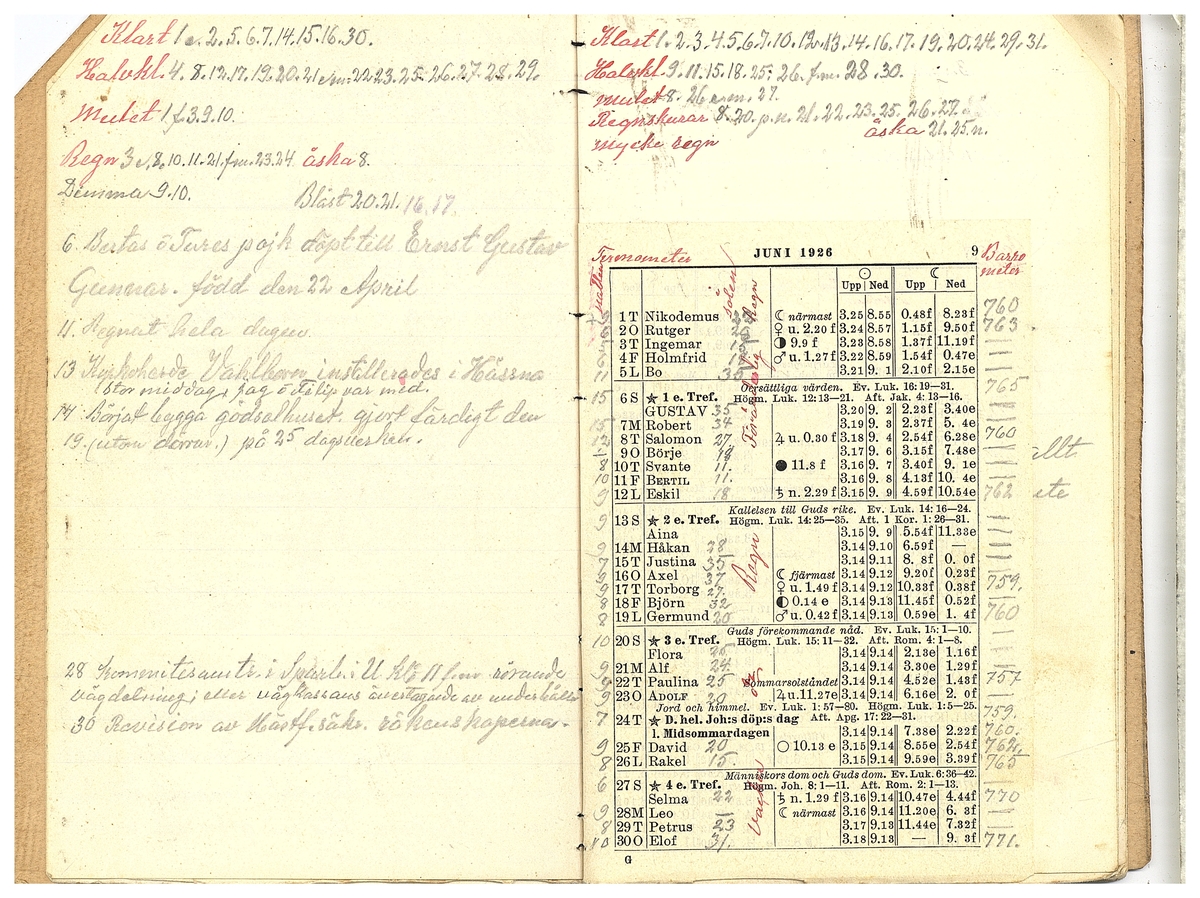 Klart 1 e. 2. 5. 6. 7. 14. 15. 16. 30.
Halvkl. 4. 8. 12. 17. 19. 20. 21 em. 22. 23. 25. 26. 27. 28. 29.
Mulet 1 f. 3. 9. 10.
Regn 3 e. 8. 10. 11. 21. f.m. 23. 24. åska 8.
Dimma 9. 10. Blåst 20. 21. 16. 17.
6. Bertas o Tures pojk döpt till Ernst Gustav
Gunnar. född den 22 April
11. Regnat hela dagen.
13 Kyrkoherde Vahlborn installerades i Hässna
Stor middag, jag o Filip var med.
14 Börjat bygga gödselhuset. gjort färdigt den
19. (utom dörrar.) på 25 dagsverken.
28 i U kl. 11 f.m. rörande
vägdelning, eller vägkassans övertagande av underhållet
30 Revision av Hästf.säkr. räkenskaperna.
Klart 1. 2. 3. 4. 5. 6. 7. 10. 12. 13. 14. 16. 17. 19. 20. 24. 29. 31.
Halvkl. 9. 11. 15. 18. 25. 26. f.m. 28. 30.
Mulet 8. 26 e.m. 27.
Regnskurar 8. 20. 21. 22. 23. 25. 26. 27.
åska 21. 25. n.
Mycke regn
Termometer JUNI 1926 9 Barro
meter
Upp Ned Upp Ned
1 T Nikodemus ☾ närmast 3.25 8.55 0.48f 8.23f 760
2 O Rutger ♀ u. 2.20 f 3.24 8.57 1.15f 9.50f 763
3 T Ingemar ◑ 9.9 f 3.23 8.58 1.37f 11.19f
4 F Holmfrid ♂ u. 1.27 f 3.22 8.59 1.54f 0.47e
11 5 L Bo 35 3.21 9. 1 2.10f 2.15e
Oersättliga värden. Ev. Luk. 16: 19—31. 765
15 6 S ★ 1 e. Tref. Högm. Luk. 12: 13—21. Aft. Jak. 4: 13—16.
GUSTAV 35 3.20 9. 2 2.23f 3.40e
15 7 M Robert 34 3.19 9. 3 2.37f 5. 4e
12 8 T Salomon 27 ♃ u. 0.30 f 3.18 9. 4 2.54f 6.28e 760
9 O Börje 18 3.17 9. 6 3.15f 7.48e
8 10 T Svante 11. ● 11.8 f 3.16 9. 7 3.40f 9. 1e
10 11 F BERTIL 11. 3.16 9. 8 4.13f 10. 4e
9 12 L Eskil 18 ♄ n. 2.29 f 3.15 9. 9 4.59f 10.54e 762
Kallelsen till Guds rike. Ev. Luk. 14: 16—24.
9 13 S ★ 2 e. Tref. Högm. Luk. 14: 25—35. Aft. 1 Kor. 1: 26—31.
Aina 3.15 9. 9 5.54f 11.33e
9 14 M Håkan 28 3.14 9.10 6.59f —
7 15 T Justina 35 3.14 9.11 8. 8f 0. 0f
16 O Axel 37 ☾ fjärmast 3.14 9.12 9.20f 0.23f
9 17 T Torborg 27. ♀ u. 1.49 f 3.14 9.12 10.33f 0.38f 759.
8 18 F Björn 32 ◐ 0.14 e 3.14 9.13 11.45f 0.52f
8 19 L Germund 20 ♂ u. 0.42 f 3.14 9.13 0.59e 1. 4f 760
Guds förekommande nåd. Ev. Luk. 15: 1—10.
10 20 S ★ 3 e. Tref. Högm. Luk. 15: 11—32. Aft. Rom. 4: 1—8.
Flora 25 3.14 9.14 2.13e 1.16f
9 21 M Alf 24. 3.14 9.14 3.30e 1.29f
22 T Paulina 25 Sommarsolståndet 3.14 9.14 4.52e 1.43f 757
9 23 O ADOLF 20 ♃ u. 11.27 e 3.14 9.14 6.16e 2. 0f
Jord och himmel. Ev. Luk. 1: 57—80. Högm. Luk. 1: 5—25.
7 24 T ★ D. hel. Joh:s döp:s dag Aft. Apg. 17: 22—31. 759.
l. Midsommardagen 3.14 9.14 7.38e 2.22f 760.
9 25 F David 20 ○ 10.13 e 3.15 9.14 8.55e 2.54f 762.
8 26 L Rakel 15. 3.15 9.14 9.59e 3.39f 765
Människors dom och Guds dom. Ev. Luk. 6: 36—42.
6 27 S ★ 4 e. Tref. Högm. Joh. 8: 1—11. Aft. Rom. 2: 1—13.
Selma 22 ♄ n. 1.29 f 3.16 9.14 10.47e 4.44f 770
9 28 M Leo — ☾ närmast 3.16 9.14 11.20e 6. 3f
8 29 T Petrus 23 3.17 9.13 11.44e 7.32f
10 30 O Elof 31. 3.18 9.13 — 9. 3f 771.
G
natten
i solen
Regn
Föränderlig
Regn
och
Vackert